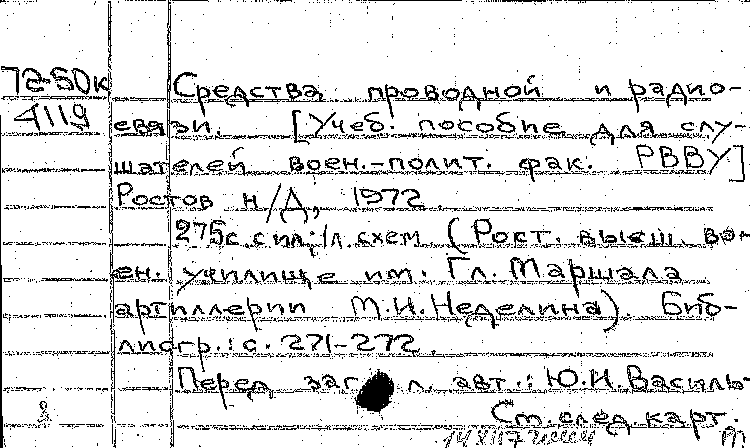 72-50к
4119
Средства проводной и радио-
связи. [Учеб. пособие для слу-
шателей воен.-полит. фак. РВВУ]
Ростов н/Д, 1972.
275с. с ил; 1л. схем (Рост. высш. во-
ен. училище им. Гл. Маршала
артиллерии М.И. Неделина). Биб-
лиогр.: с. 271-272.
Перед заг. л. авт.: Ю.И. Василь-
См. след. карт.